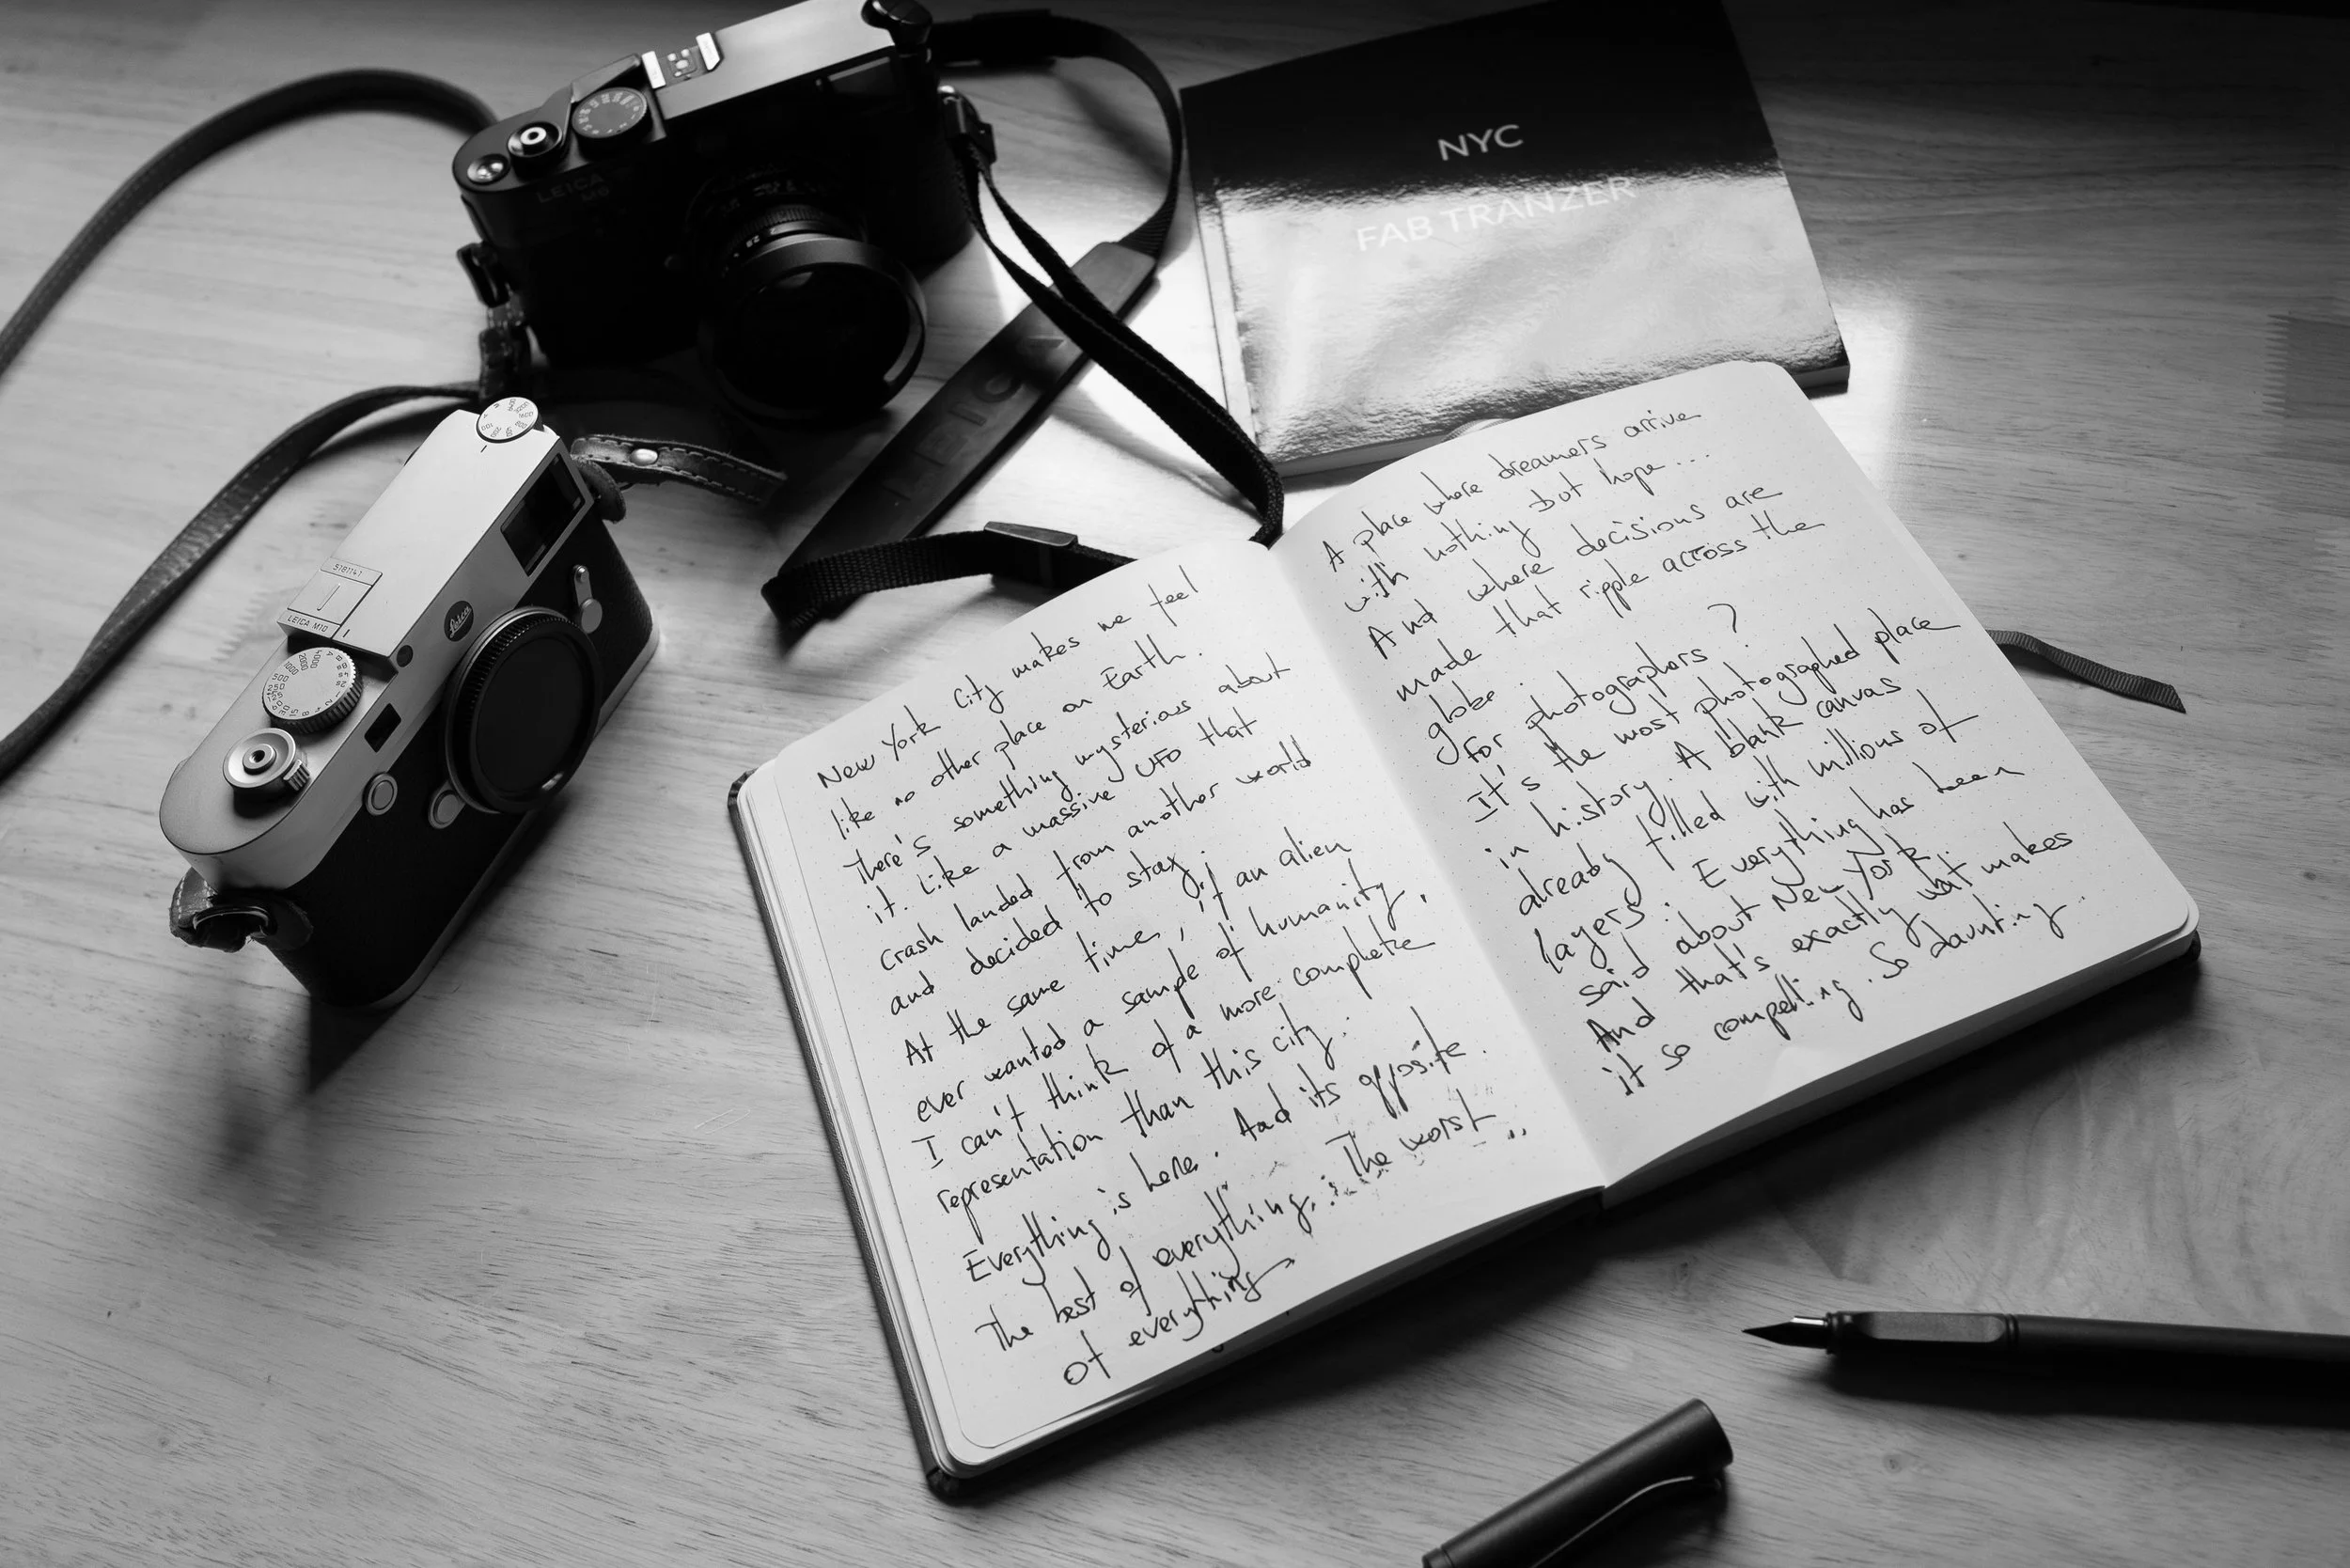 NYC
FAB TRANZER
LEICA
M10
LEICA
5181141
LEICA M10
Leica
New York City makes me feel
like no other place on Earth.
There's something mysterious about
it. Like a massive UFO that
crash landed from another world
and decided to stay.
At the same time, if an alien
ever wanted a sample of humanity,
I can't think of a more complete
representation than this city.
Everything is here. And its opposite.
The best of everything. The worst
of everything
A place where dreamers arrive
with nothing but hope...
And where decisions are
made that ripple across the
globe.
For photographers?
It's the most photographed place
in history. A blank canvas
already filled with millions of
layers. Everything has been
said about New York.
And that's exactly what makes
it so compelling. So daunting.